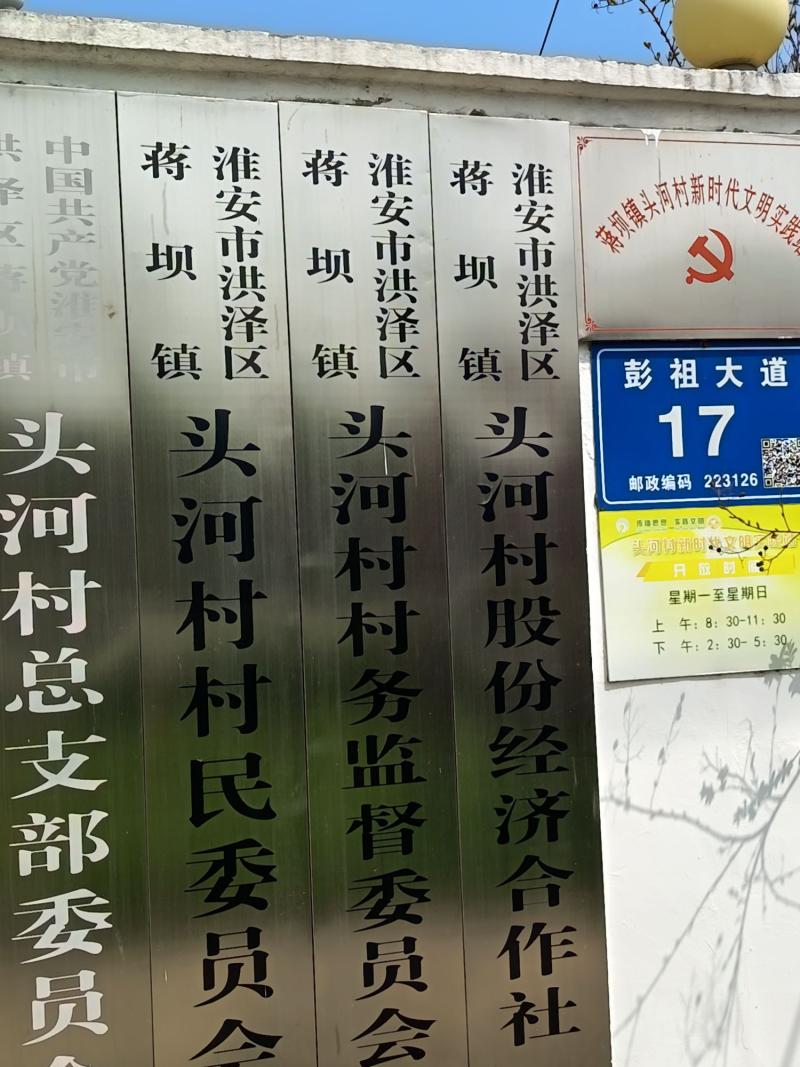 中国共产党淮安市
洪泽区蒋坝镇
头河村总支部委员会
淮安市洪泽区
蒋坝镇
头河村村民委员会
淮安市洪泽区
蒋坝镇
头河村村务监督委员会
淮安市洪泽区
蒋坝镇
头河村股份经济合作社
蒋坝镇头河村新时代文明实践
彭祖大道
17
邮政编码 223126
传播思想 实践文明
头河村新时代文明
开放时间
星期一至星期日
上 午：8：30-11：30
下 午：2：30-5：30